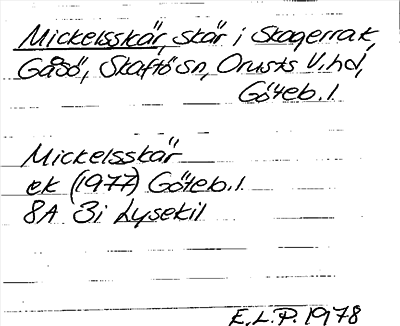 Mickelsskär, skär i Skagerrak,
Gåsö, Skaftö sn, Orusts V. hd,
Göteb. l.
Mickelsskär
ek (1977) Göteb. l.
8A 3i Lysekil
E.L.P. 1978